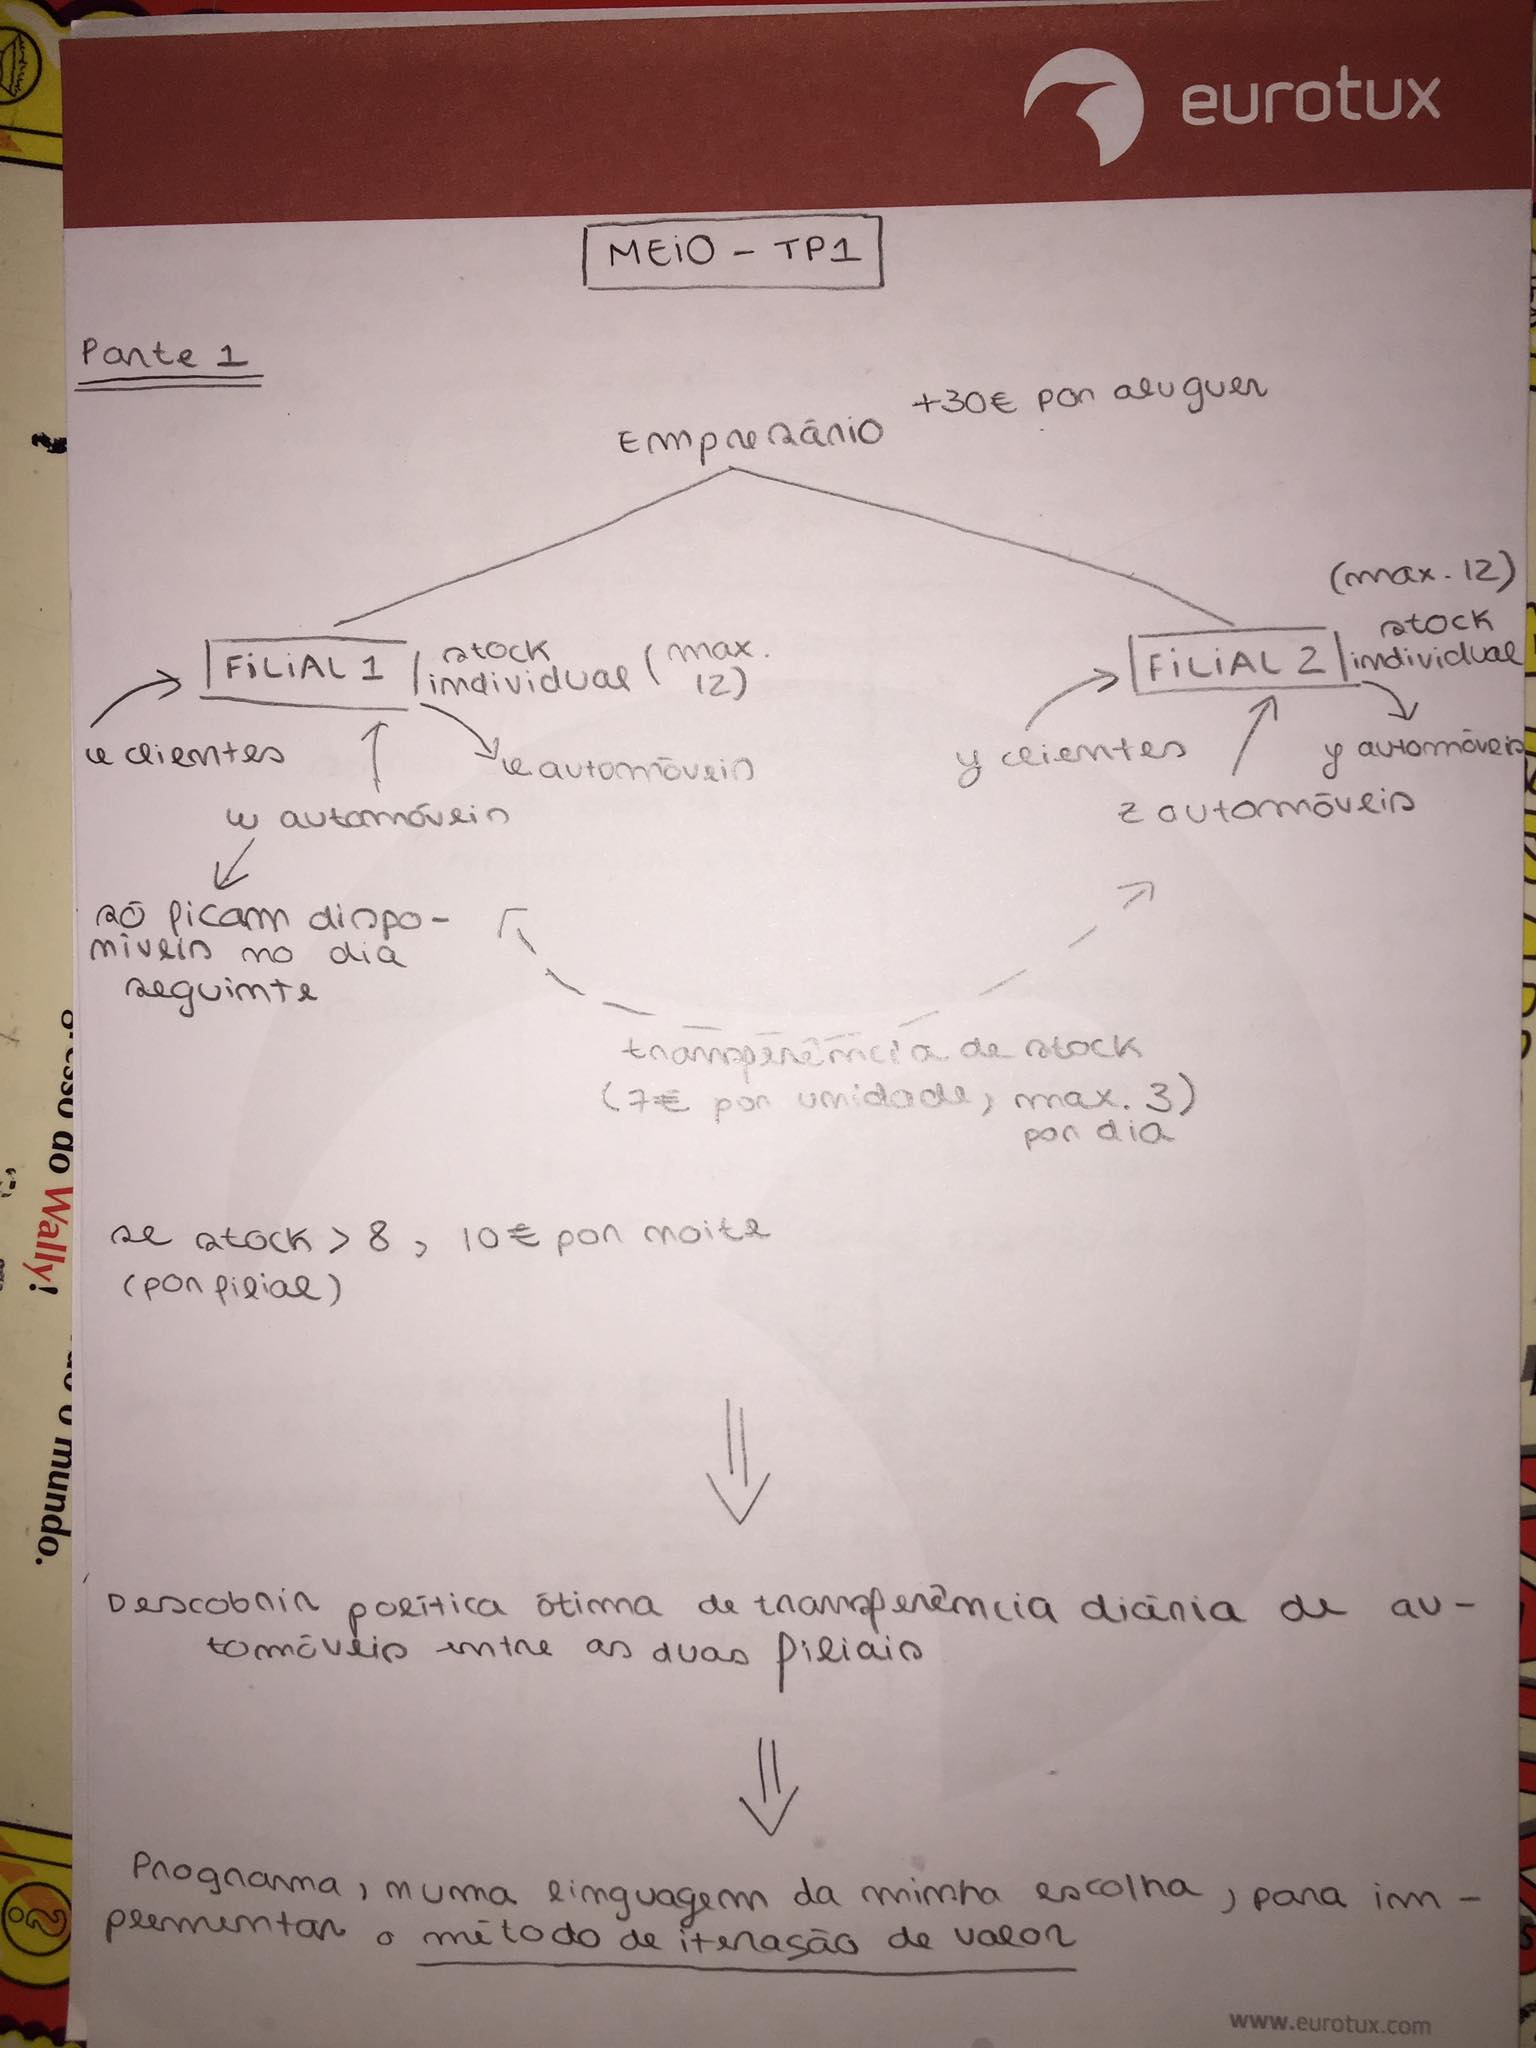 eurotux
MEIO - TP1
Parte 1
Empresário +30€ por aluguer
FILIAL 1 stock individual (max. 12)
(max. 12)
FILIAL 2 stock individual
x clientes
x automóveis
w automóveis
y clientes
y automóveis
z automóveis
só ficam dispo-
níveis no dia
seguinte
transferência de stock
(7€ por unidade, max. 3)
por dia
se stock > 8, 10€ por noite
(por filial)
Descobrir política ótima de transferência diária de au-
tomóveis entre as duas filiais
Programa, numa linguagem da minha escolha, para im-
plementar o método de iteração de valor
www.eurotux.com
do Wally!
o mundo.